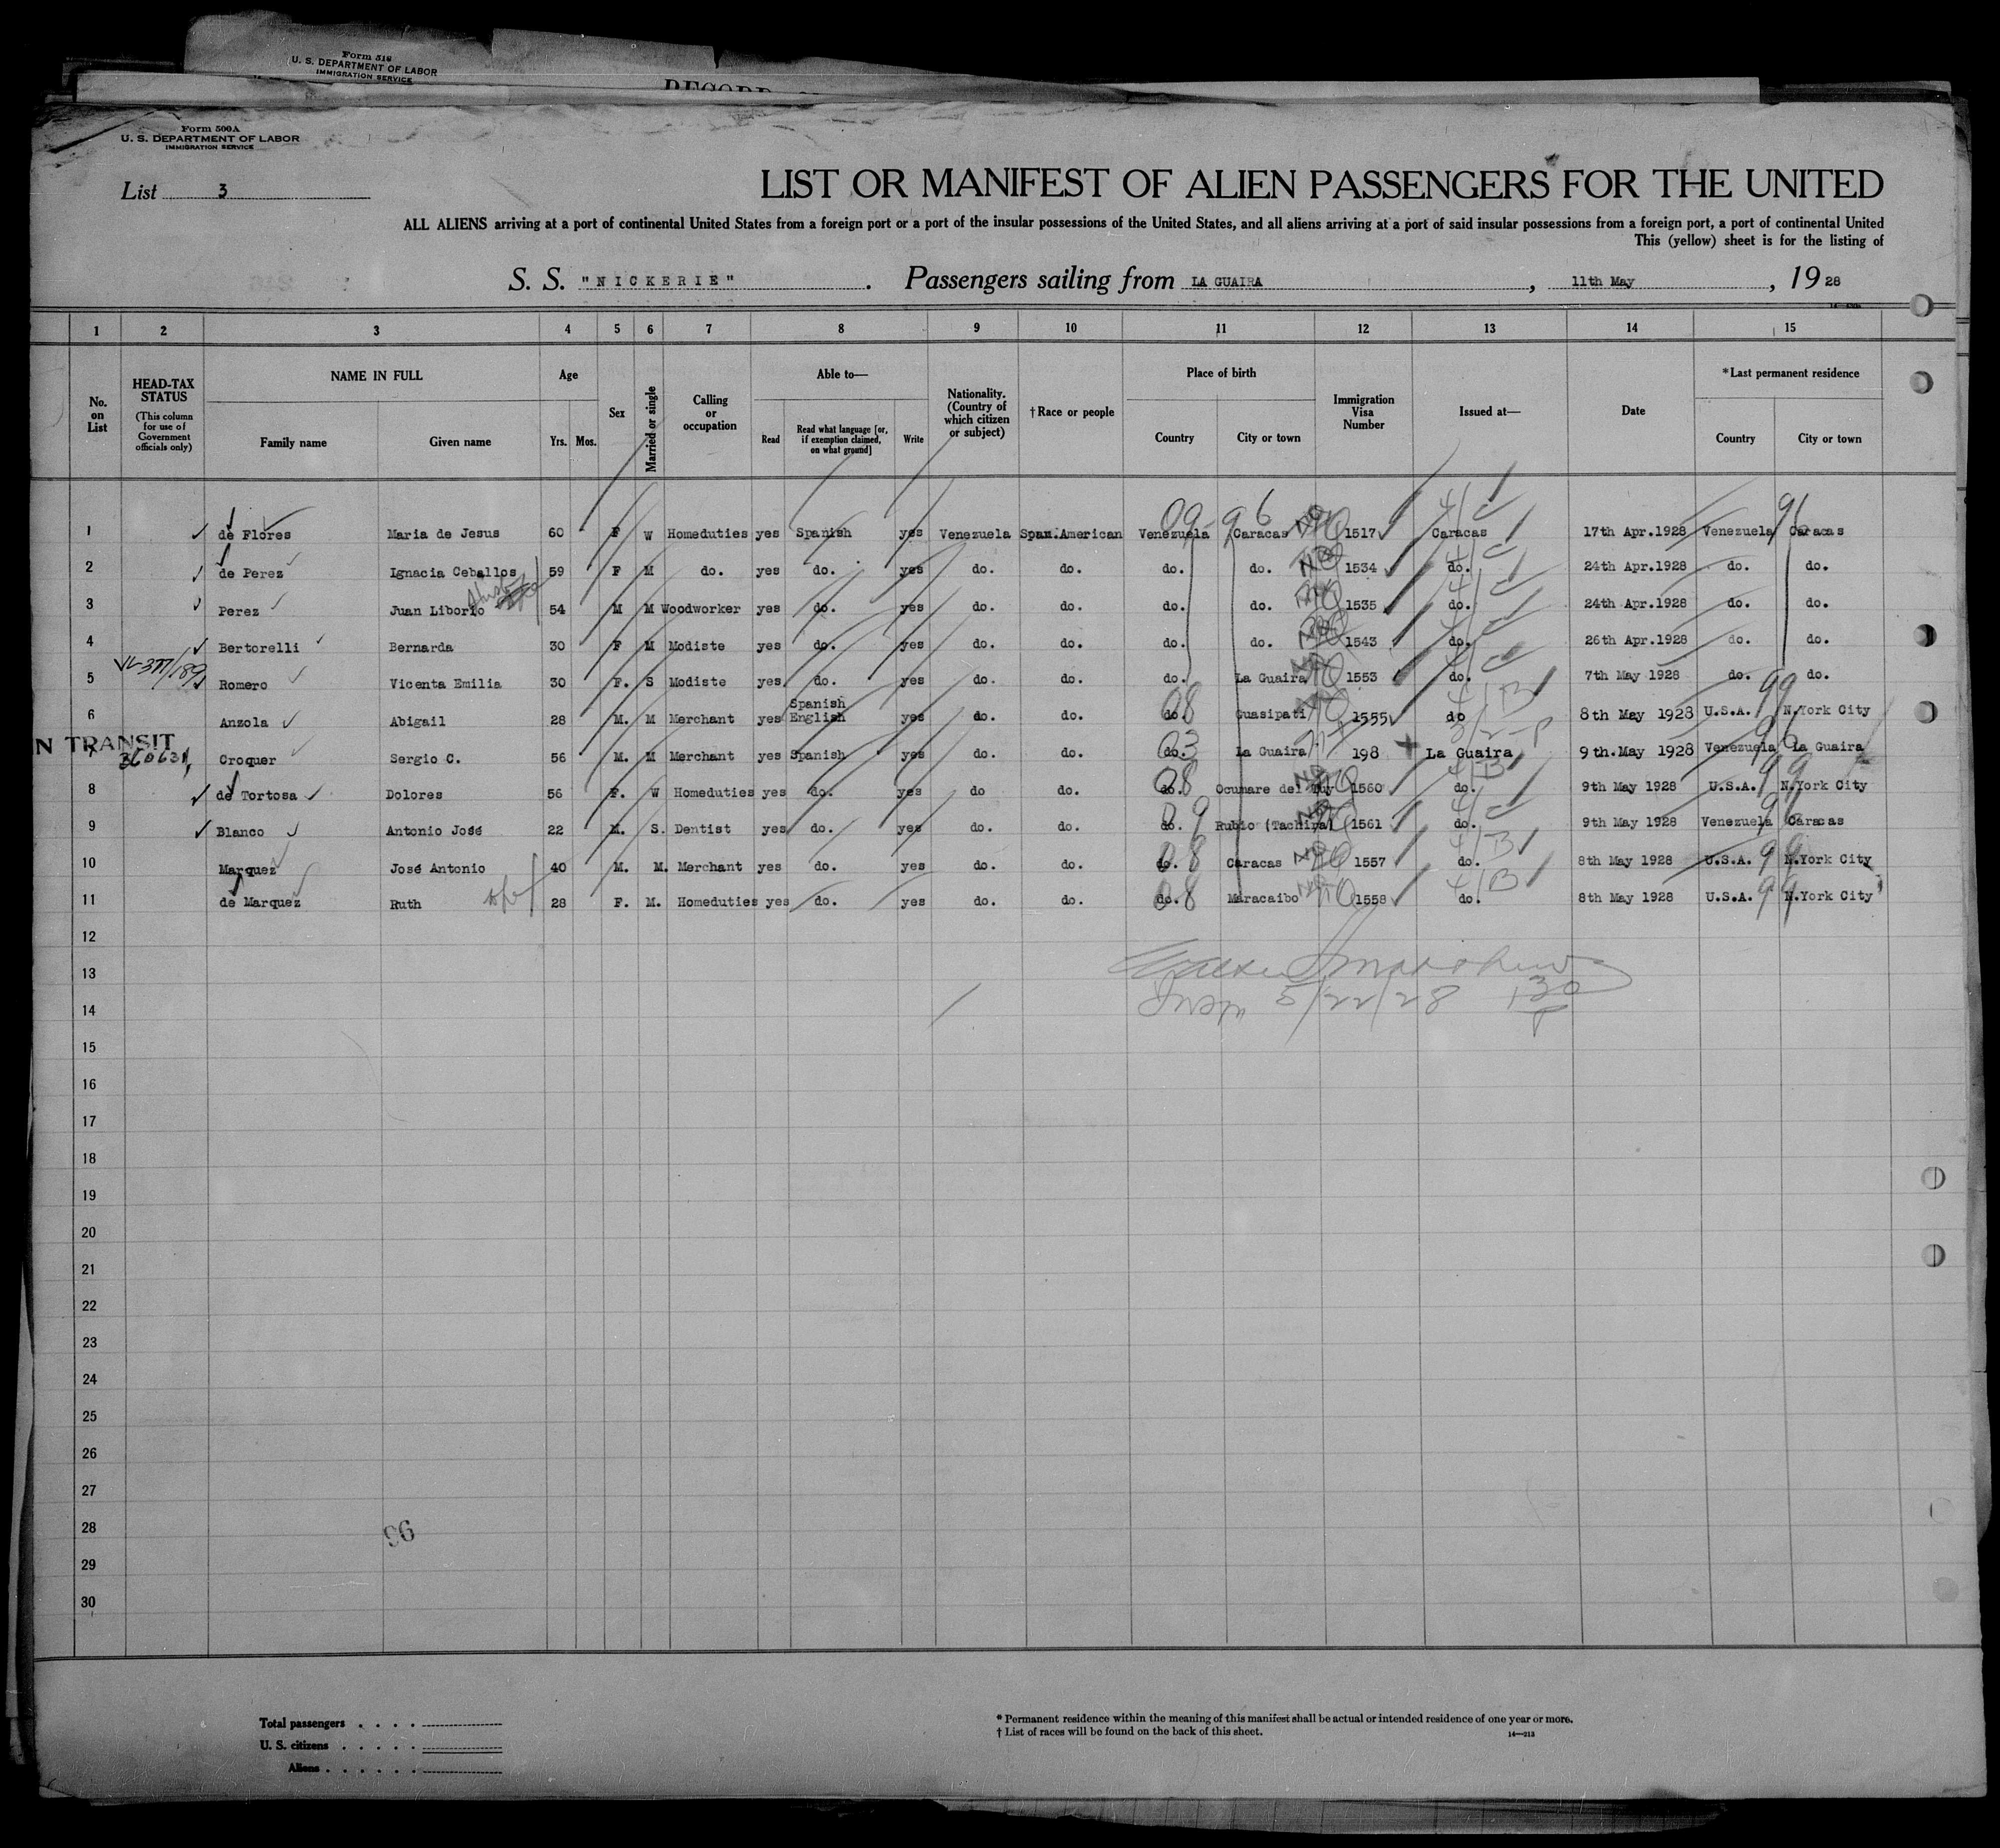 Form 516
U. S. DEPARTMENT OF LABOR
IMMIGRATION SERVICE
RECORD
Form 500A
U. S. DEPARTMENT OF LABOR
IMMIGRATION SERVICE
List 3
LIST OR MANIFEST OF ALIEN PASSENGERS FOR THE UNITED
ALL ALIENS arriving at a port of continental United States from a foreign port or a port of the insular possessions of the United States, and all aliens arriving at a port of said insular possessions from a foreign port, a port of continental United
This (yellow) sheet is for the listing of
S. S. "NICKERIE". Passengers sailing from LA GUAIRA, 11th May, 1928
1 2 3 4 5 6 7 8 9 10 11 12 13 14 15
No. on List
HEAD-TAX STATUS
(This column for use of Government officials only)
NAME IN FULL
Family name Given name
Age
Yrs. Mos.
Sex
Married or single
Calling or occupation
Able to—
Read Read what language [or, if exemption claimed, on what ground] Write
Nationality. (Country of which citizen or subject)
†Race or people
Place of birth
Country City or town
Immigration Visa Number
Issued at—
Date
*Last permanent residence
Country City or town
1 de Flores Maria de Jesus 60 F W Homeduties yes Spanish yes Venezuela Span.American Venezuela Caracas 1517 Caracas 17th Apr.1928 Venezuela Caracas
2 de Perez Ignacia Ceballos 59 F M do. yes do. yes do. do. do. do. 1534 do. 24th Apr.1928 do. do.
3 Perez Juan Liborio 54 M M Woodworker yes do. yes do. do. do. do. 1535 do. 24th Apr.1928 do. do.
4 Bertorelli Bernarda 30 F M Modiste yes do. yes do. do. do. do. 1543 do. 26th Apr.1928 do. do.
5 Romero Vicenta Emilia 30 F. S Modiste yes do. yes do. do. do. La Guaira 1553 do. 7th May 1928 do. do.
6 Anzola Abigail 28 M. M Merchant yes Spanish English yes do. do. do. Guasipati 1555 do 8th May 1928 U.S.A. N.York City
N TRANSIT
7 Croquer Sergio C. 56 M. M Merchant yes Spanish yes do. do. do. La Guaira 198 La Guaira 9th.May 1928 Venezuela La Guaira
8 de Tortosa Dolores 56 F. W Homeduties yes do. yes do do. do. Ocumare del Tuy 1560 do. 9th May 1928 U.S.A. N.York City
9 Blanco Antonio José 22 M. S. Dentist yes do. yes do. do. do. Rubio (Tachira) 1561 do. 9th May 1928 Venezuela Caracas
10 Marquez José Antonio 40 M. M. Merchant yes do. yes do. do. do. Caracas 1557 do. 8th May 1928 U.S.A. N.York City
11 de Marquez Ruth 28 F. M. Homeduties yes do. yes do. do. do. Maracaibo 1558 do. 8th May 1928 U.S.A. N.York City
12
13
14 Insp 5/22/28 130 P
15
16
17
18
19
20
21
22
23
24
25
26
27
28 96
29
30
Total passengers . . . .
U. S. citizens . . . . .
Aliens . . . . . .
* Permanent residence within the meaning of this manifest shall be actual or intended residence of one year or more.
† List of races will be found on the back of this sheet. 14—213